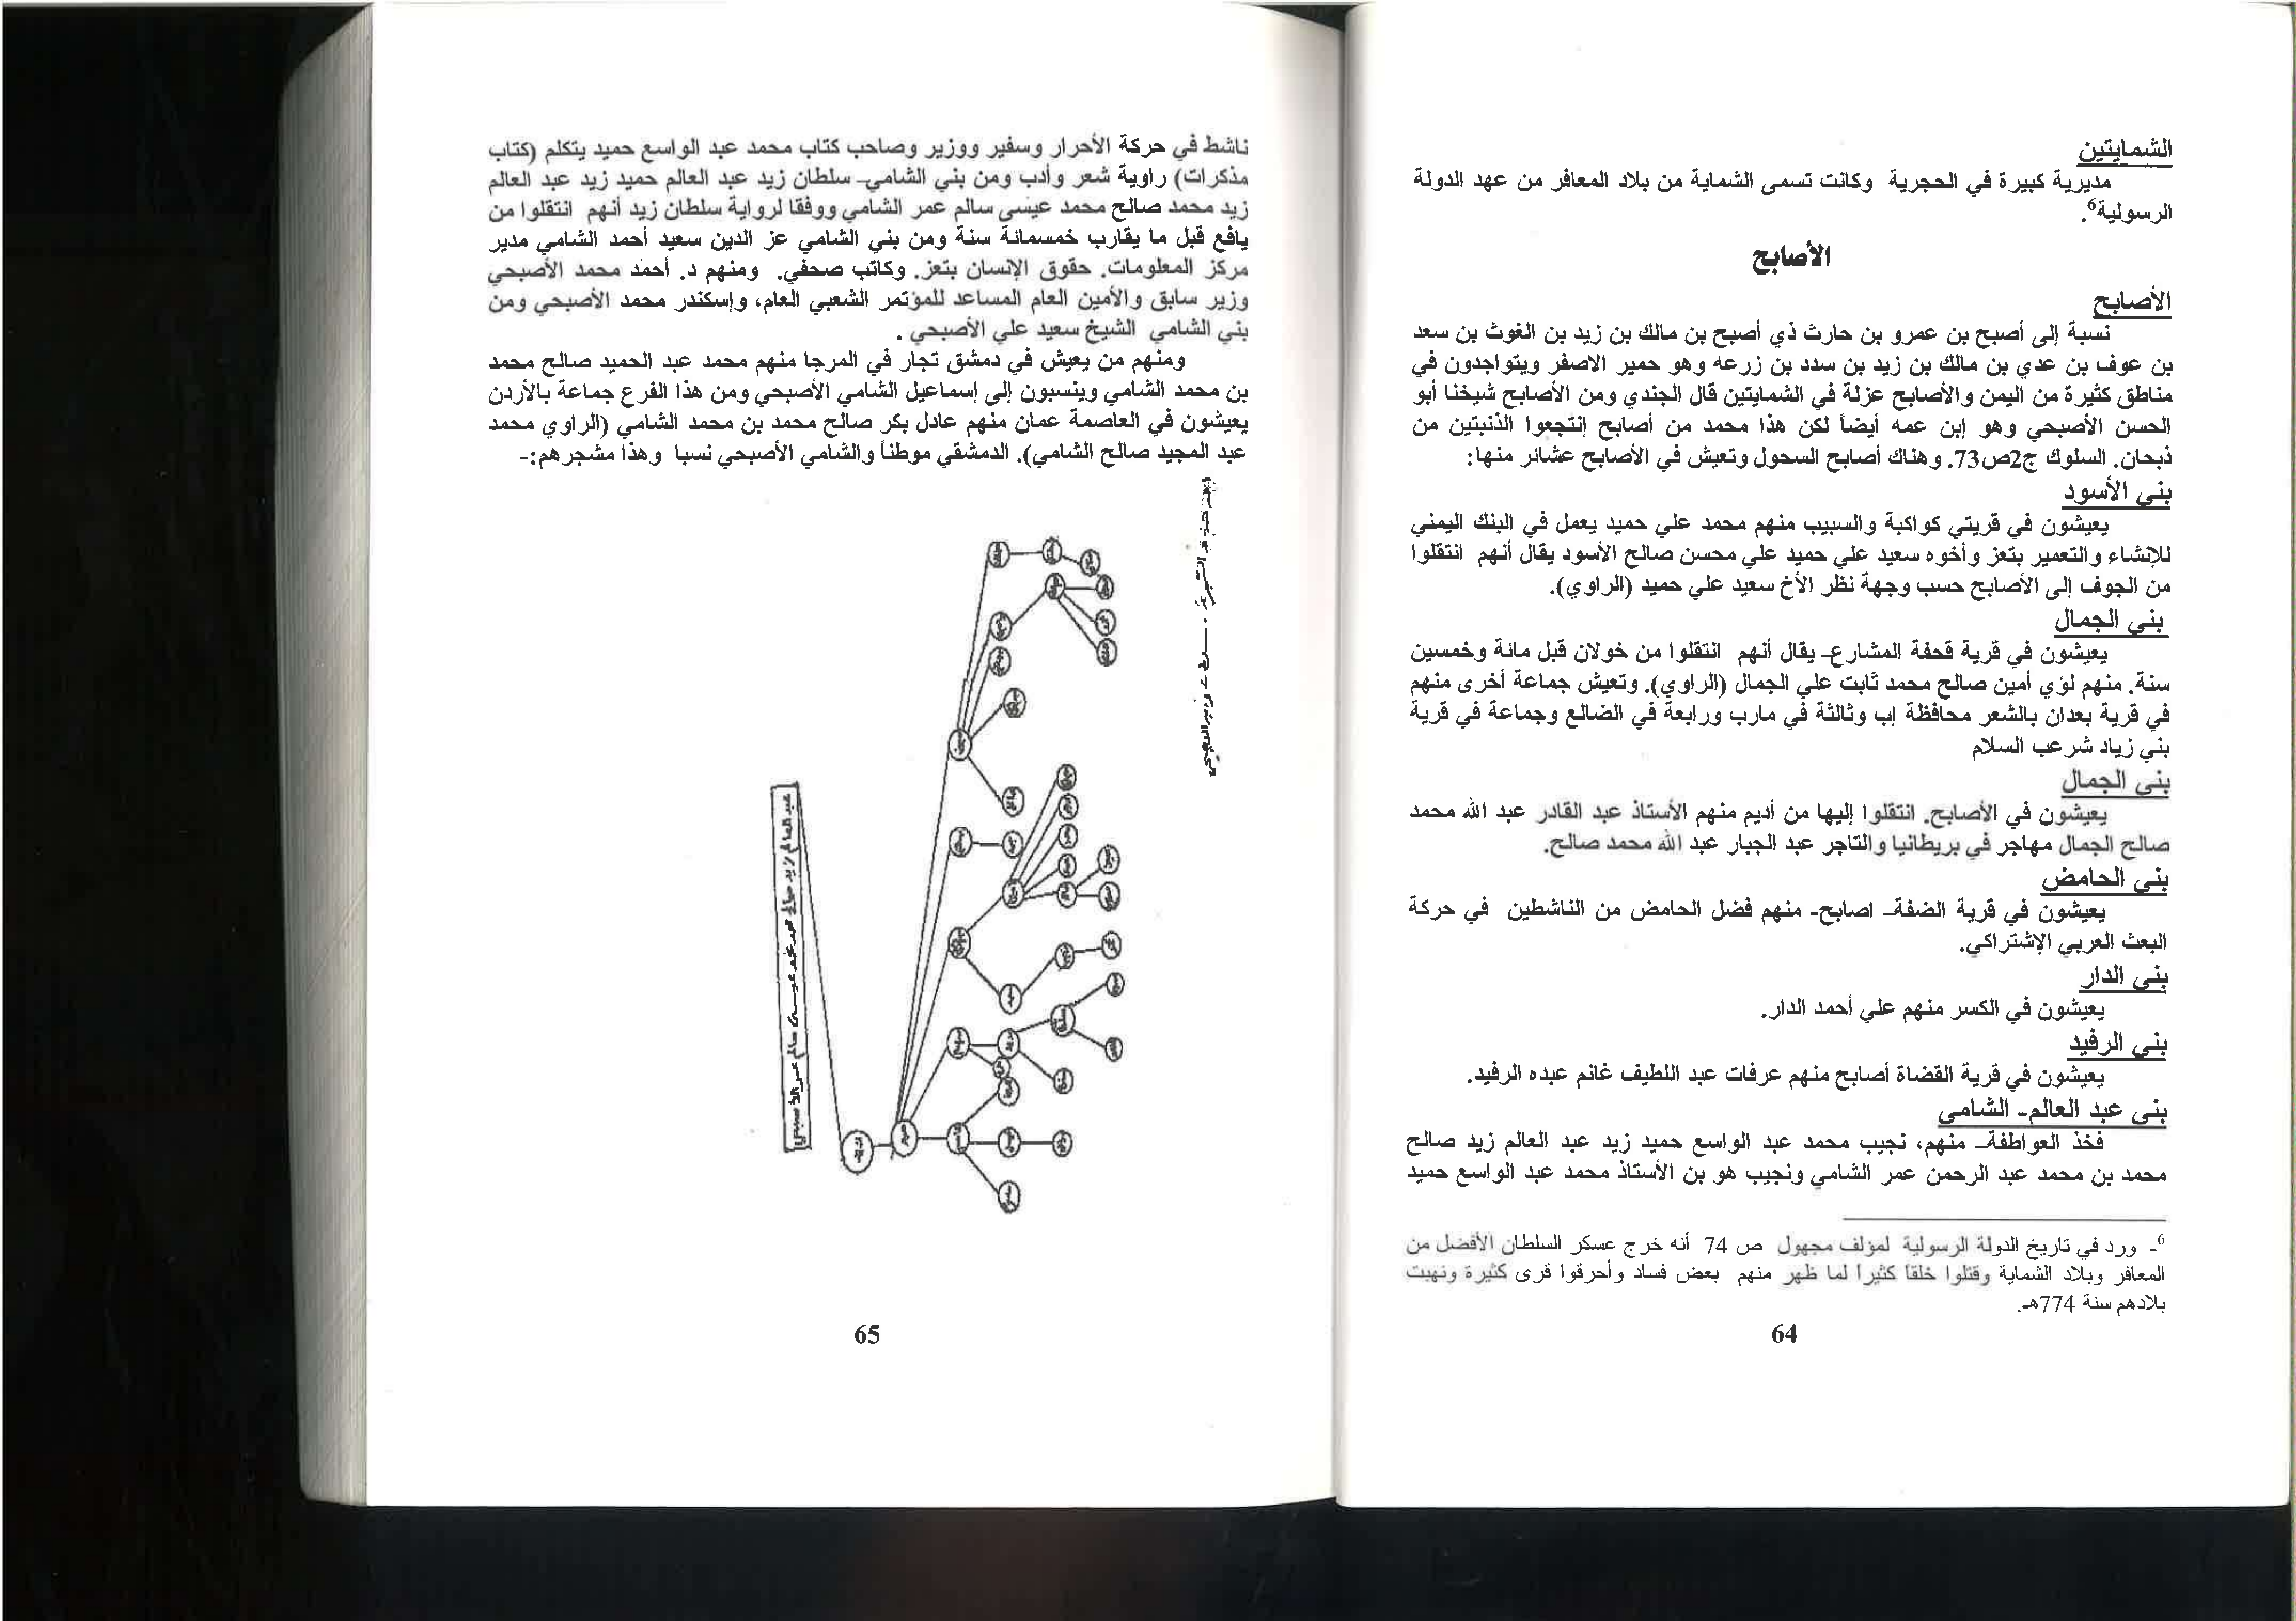 الشمايتين
مديرية كبيرة في الحجرية وكانت تسمى الشماية من بلاد المعافر من عهد الدولة
الرسولية6.
الأصابح
الأصابح
نسبة إلى أصبح بن عمرو بن حارث ذي أصبح بن مالك بن زيد بن الغوث بن سعد
بن عوف بن عدي بن مالك بن زيد بن سدد بن زرعه وهو حمير الاصفر ويتواجدون في
مناطق كثيرة من اليمن والأصابح عزلة في الشمايتين قال الجندي ومن الأصابح شيخنا أبو
الحسن الأصبحي وهو إبن عمه أيضاً لكن هذا محمد من أصابح إنتجعوا الذنبتين من
ذبحان. السلوك ج2ص73. وهناك أصابح السحول وتعيش في الأصابح عشائر منها:
بني الأسود
يعيشون في قريتي كواكبة والسبيب منهم محمد علي حميد يعمل في البنك اليمني
للإنشاء والتعمير بتعز وأخوه سعيد علي حميد علي محسن صالح الأسود يقال أنهم انتقلوا
من الجوف إلى الأصابح حسب وجهة نظر الأخ سعيد علي حميد (الراوي).
بني الجمال
يعيشون في قرية قحفة المشارع- يقال أنهم انتقلوا من خولان قبل مائة وخمسين
سنة. منهم لؤي أمين صالح محمد ثابت علي الجمال (الراوي). وتعيش جماعة أخرى منهم
في قرية بعدان بالشعر محافظة إب وثالثة في مارب ورابعة في الضالع وجماعة في قرية
بني زياد شرعب السلام
بني الجمال
يعيشون في الأصابح. انتقلوا إليها من أديم منهم الأستاذ عبد القادر عبد الله محمد
صالح الجمال مهاجر في بريطانيا والتاجر عبد الجبار عبد الله محمد صالح.
بني الحامض
يعيشون في قرية الضفة- اصابح- منهم فضل الحامض من الناشطين في حركة
البعث العربي الإشتراكي.
بني الدار
يعيشون في الكسر منهم علي أحمد الدار.
بني الرفيد
يعيشون في قرية القضاة أصابح منهم عرفات عبد اللطيف غانم عبده الرفيد.
بني عبد العالم- الشامي
فخذ العواطفة- منهم، نجيب محمد عبد الواسع حميد زيد عبد العالم زيد صالح
محمد بن محمد عبد الرحمن عمر الشامي ونجيب هو بن الأستاذ محمد عبد الواسع حميد
6- ورد في تاريخ الدولة الرسولية لمؤلف مجهول ص 74 أنه خرج عسكر السلطان الأفضل من
المعافر وبلاد الشماية وقتلوا خلقا كثيرا لما ظهر منهم بعض فساد وأحرقوا قرى كثيرة ونهبت
بلادهم سنة 774هـ.
64
ناشط في حركة الأحرار وسفير ووزير وصاحب كتاب محمد عبد الواسع حميد يتكلم (كتاب
مذكرات) راوية شعر وأدب ومن بني الشامي- سلطان زيد عبد العالم حميد زيد عبد العالم
زيد محمد صالح محمد عيسى سالم عمر الشامي ووفقا لرواية سلطان زيد أنهم انتقلوا من
يافع قبل ما يقارب خمسمائة سنة ومن بني الشامي عز الدين سعيد أحمد الشامي مدير
مركز المعلومات. حقوق الإنسان بتعز. وكاتب صحفي. ومنهم د. أحمد محمد الأصبحي
وزير سابق والأمين العام المساعد للمؤتمر الشعبي العام، وإسكندر محمد الأصبحي ومن
بني الشامي الشيخ سعيد علي الأصبحي .
ومنهم من يعيش في دمشق تجار في المرجا منهم محمد عبد الحميد صالح محمد
بن محمد الشامي وينسبون إلى إسماعيل الشامي الأصبحي ومن هذا الفرع جماعة بالأردن
يعيشون في العاصمة عمان منهم عادل بكر صالح محمد بن محمد الشامي (الراوي محمد
عبد المجيد صالح الشامي). الدمشقي موطناً والشامي الأصبحي نسبا وهذا مشجرهم:-
65